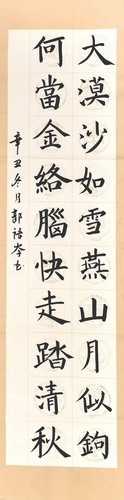 大漠沙如雪燕山月似鉤
何當金絡腦快走踏清秋
辛丑冬月郭語岑书